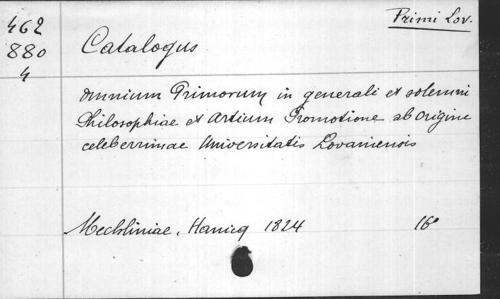 462
880
4
Primi Lov.
Catalogus
omnium Primorum in generali et solemni
Philosophiae et Artium Promotione ab origine
celeberrimae Universitatis Lovaniensis
Mechliniae, Hanicq 1824 16°